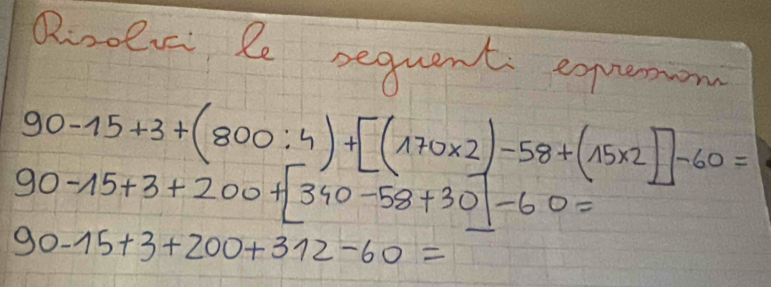 Risolvi le seguenti espressioni
90-15+3+(800:4)+[(170×2)-58+(15×2]]-60=
90-15+3+200+[340-58+30]-60=
90-15+3+200+312-60=